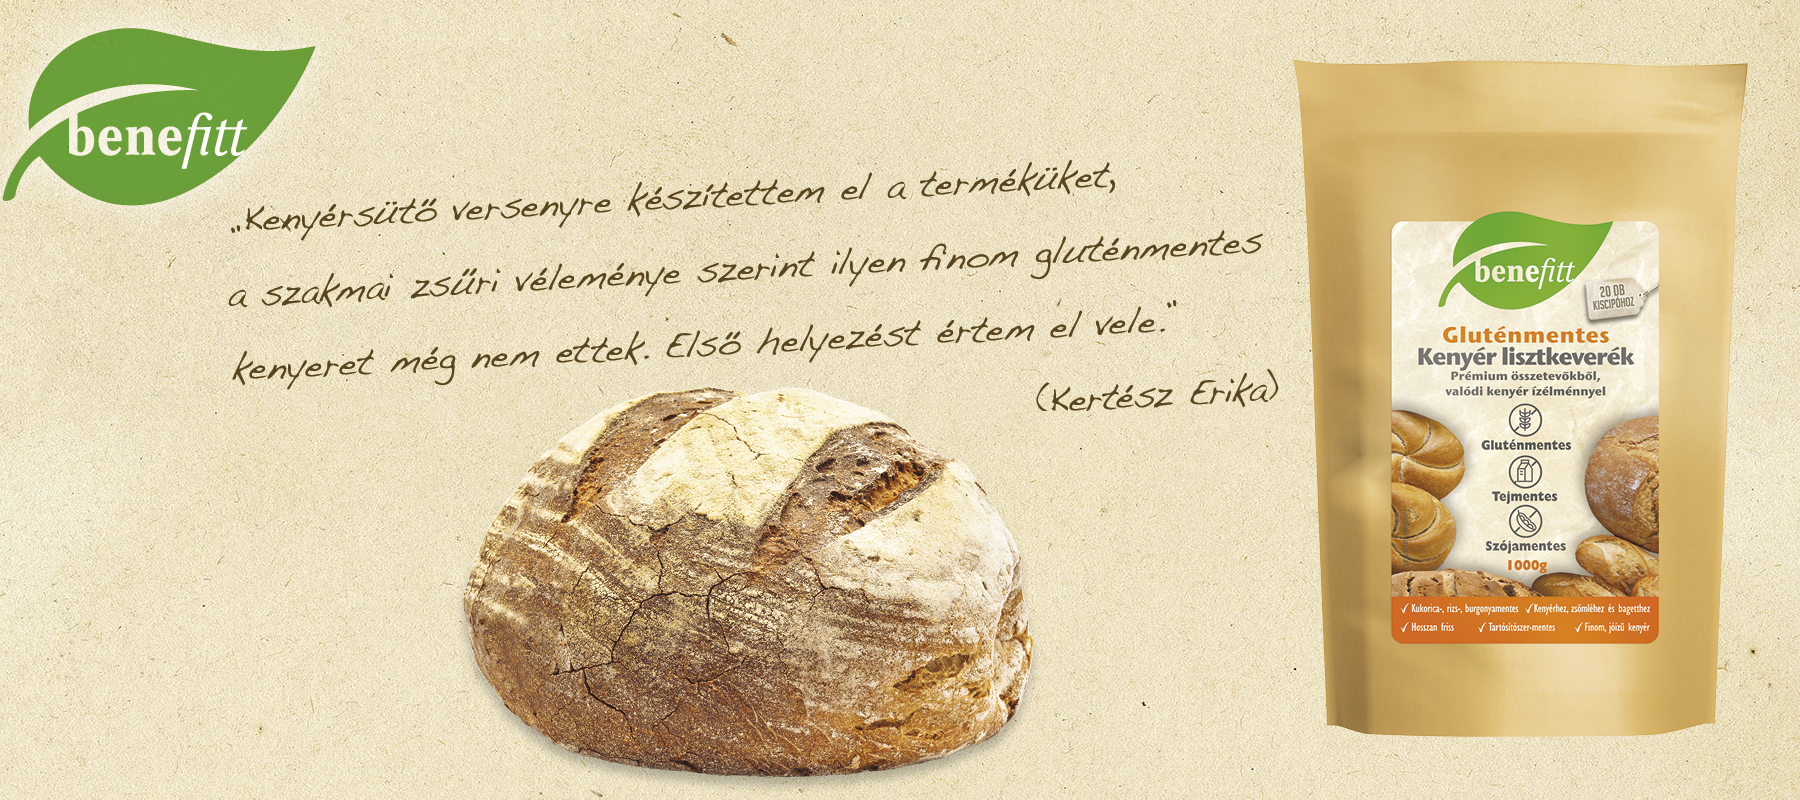 benefitt
„Kenyérsütő versenyre készítettem el a terméküket,
a szakmai zsűri véleménye szerint ilyen finom gluténmentes
kenyeret még nem ettek. Első helyezést értem el vele."
(Kertész Erika)
benefitt
20 DB
KISCIPÓHOZ
Gluténmentes
Kenyér lisztkeverék
Prémium összetevőkből,
valódi kenyér ízélménnyel
Gluténmentes
Tejmentes
Szójamentes
1000g
✓ Kukorica-, rizs-, burgonyamentes ✓ Kenyérhez, zsömléhez és bagetthez
✓ Hosszan friss ✓ Tartósítószer-mentes ✓ Finom, jóízű kenyér